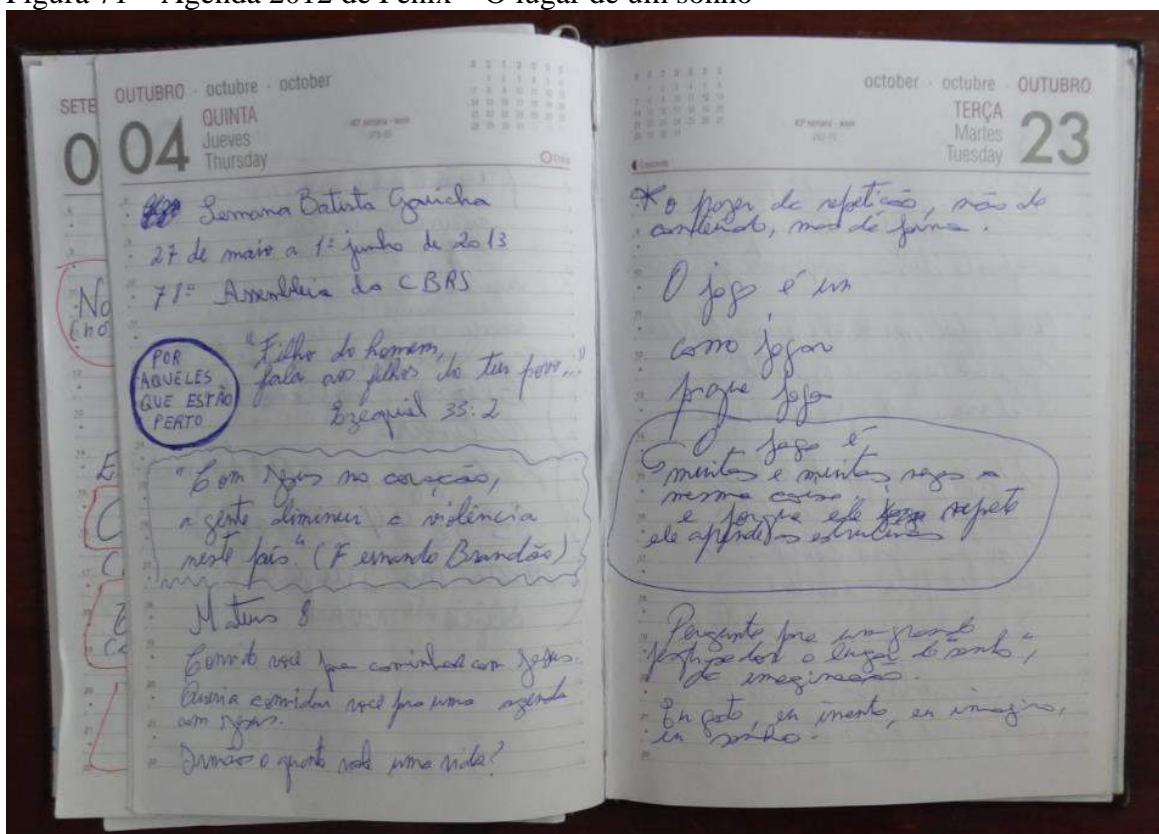 Figura 71 – Agenda 2012 de Fênix – O lugar de um sonho
SETE
0
OUTUBRO · octubre · october
04
QUINTA
Jueves
Thursday
Semana Batista Gaúcha
27 de maio a 1º junho de 2013
71ª Assembleia da CBRS
POR
AQUELES
QUE ESTÃO
PERTO
"Filho do homem,
fala aos filhos do teu povo..."
Ezequiel 33:2
"Com Jesus no coração,
a gente diminui a violência
neste país" (Fernando Brandão)
Mateus 8
Convido você pra caminhar com Jesus.
Queria convidar você pra uma agenda
com Jesus.
Irmãos o quanto vale uma vida?
october · octubre · OUTUBRO
TERÇA
Martes
Tuesday
23
* o prazer da repetição, não do
conteúdo, mas da forma.
O jogo é um
como jogar
porque joga
O jogo é
muitas e muitas vezes a
mesma coisa
e porque ele repete
ele aprende as estruturas
Pergunta pra um grande
o lugar do sonho",
da imaginação.
Eu gosto, eu invento, eu imagino,
eu sonho.